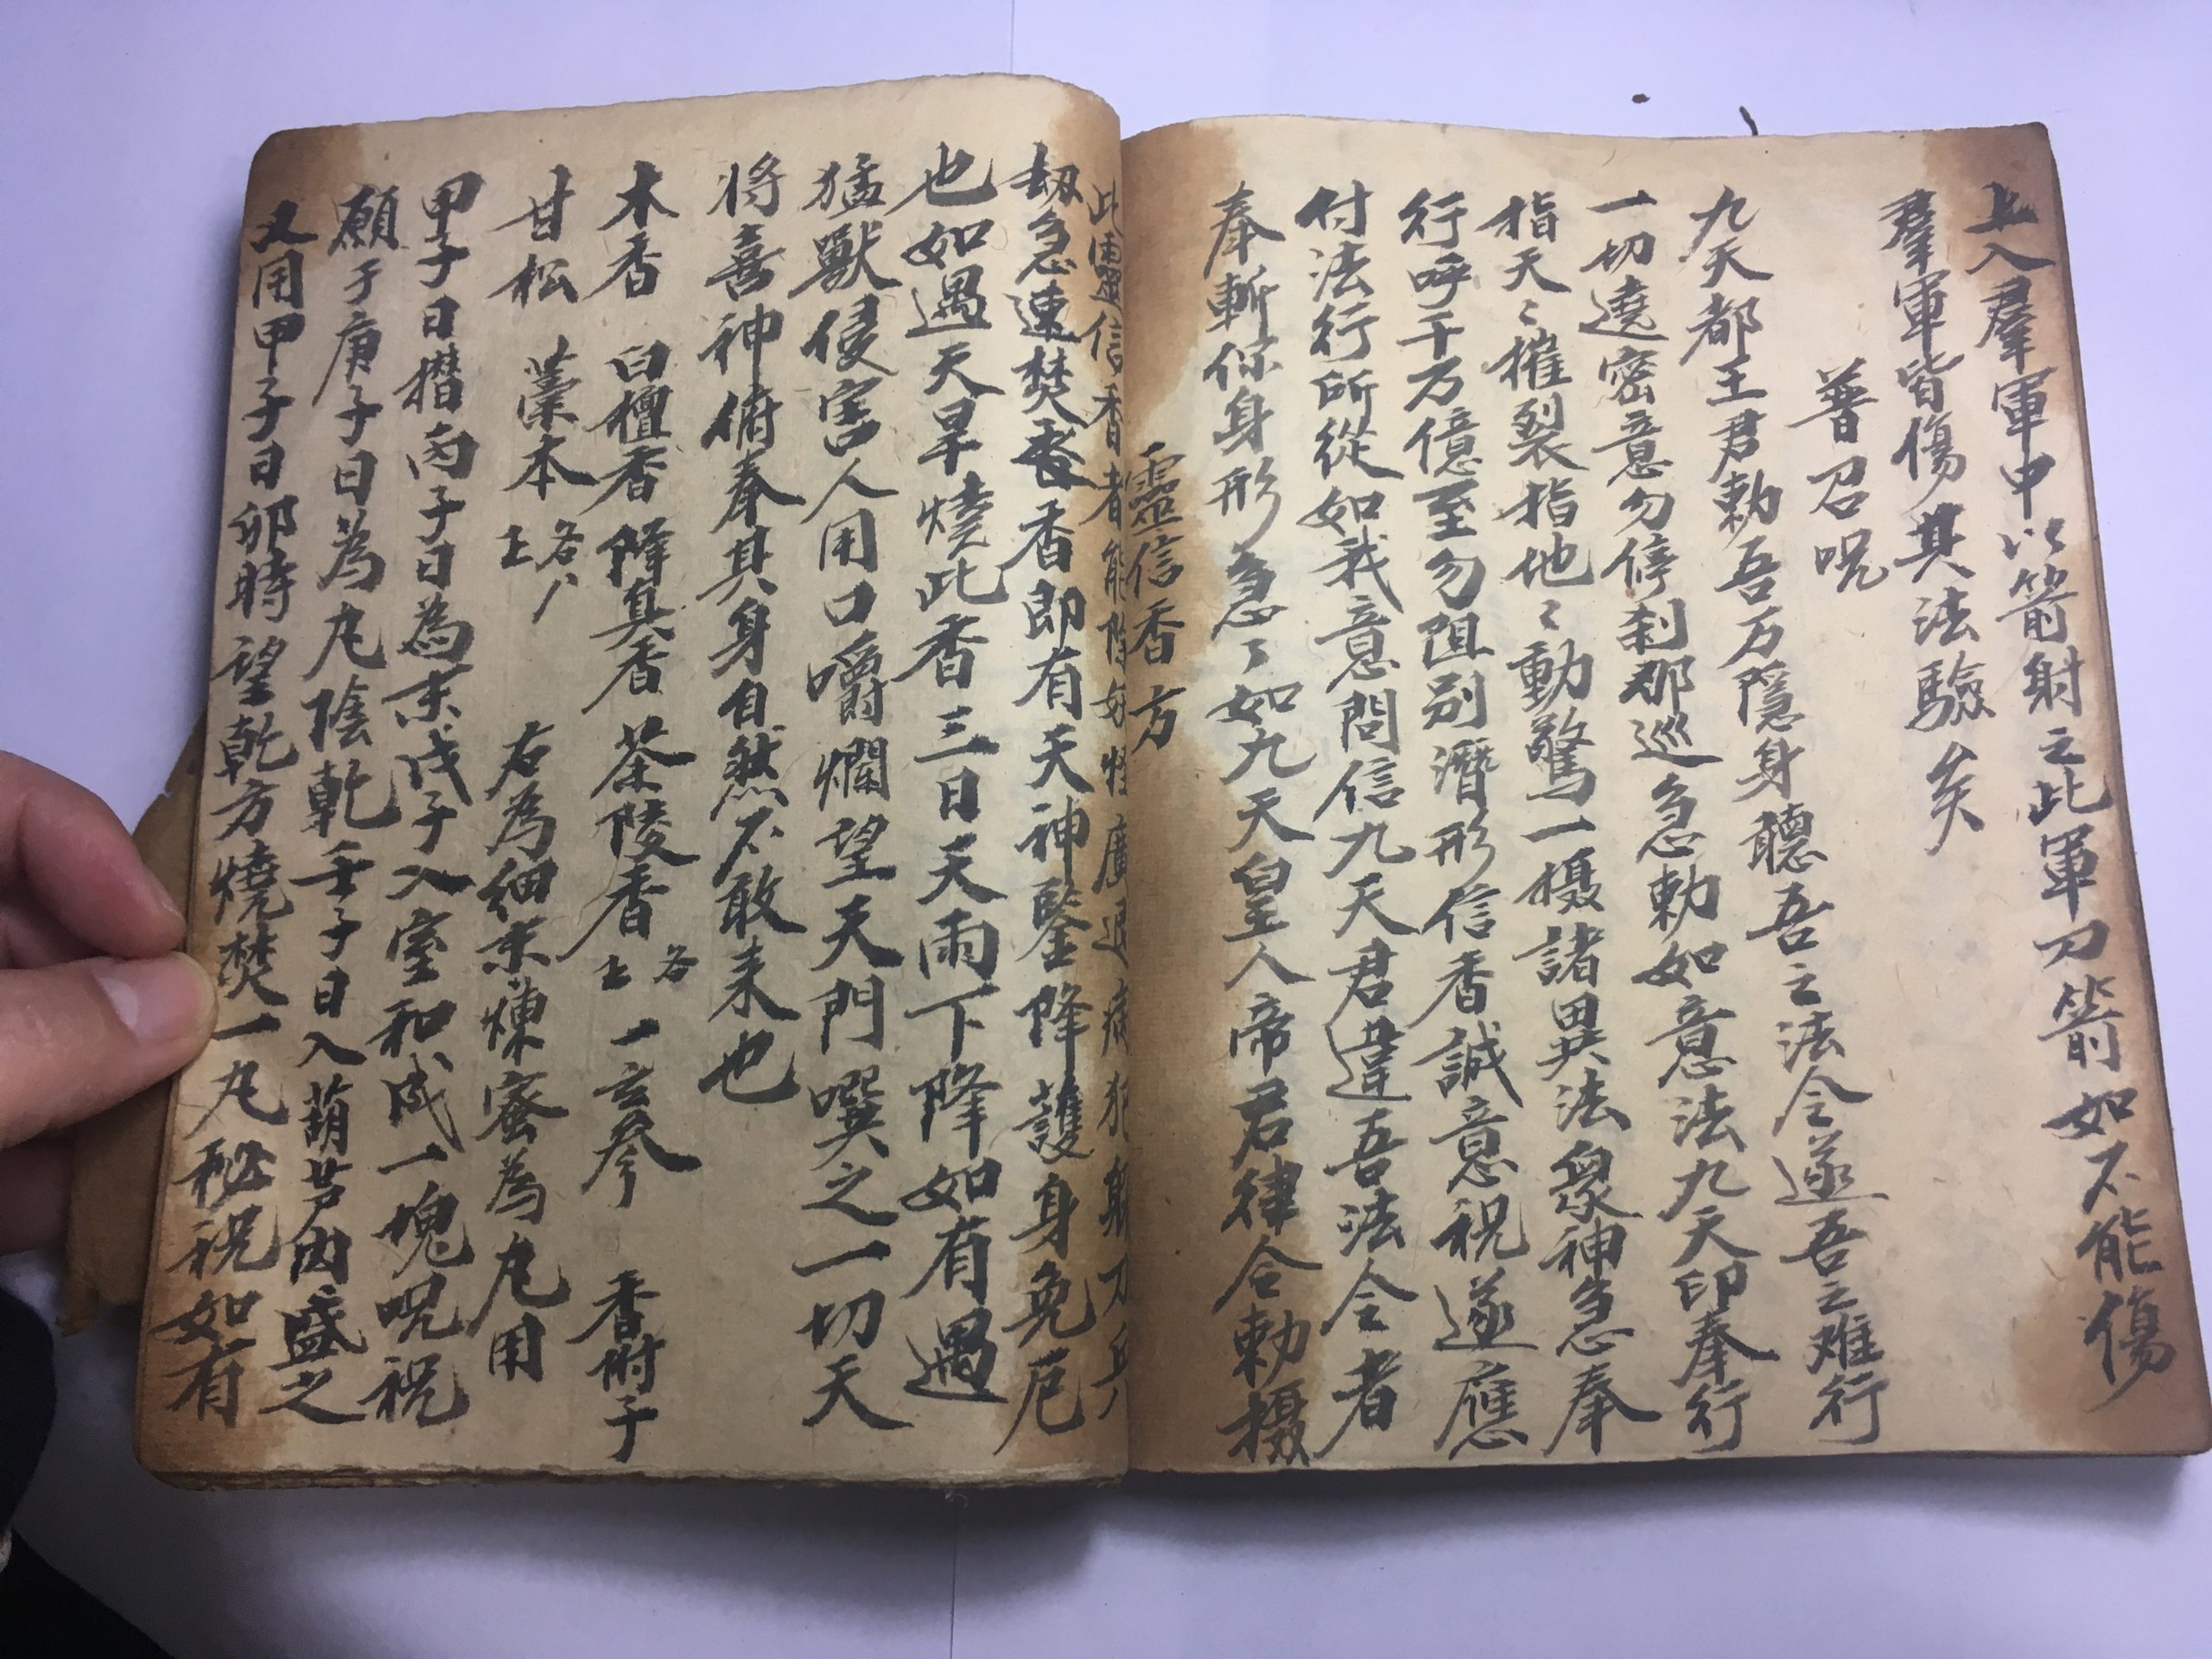 上入羣軍中以箭射之此軍刀箭如不能傷
羣軍皆傷其法驗矣
普召呪
九天都王君勅吾万隱身聽吾之法令遂吾之难行
一切遶密意勿停刹那巡急勅如意法九天印奉行
指天〻摧裂指地〻動驚一摄諸異法衆神急奉
行呼千万億至勿阻别潛形信香誠意祝遂應
付法行所從如我意問信九天君違吾法令者
奉斬你身形急〻如九天皇人帝君律令勅摄
靈信香方
此靈信香者能除妖怪
劫急速焚香香即有天神鑒降護身免厄
也如遇天旱燒此香三日天雨下降如有遇
猛獸侵害人用口嚼爛望天門噀之一切天
将喜神俯奉其身自然不敢来也
木香 白檀香 降真香 苓陵香 各 一玄參 香附子
甘松 藁本 各 右為細末煉蜜為丸用
甲子日攒丙子日為末戊子入室和成一塊呪祝
願于庚子日為丸陰乾壬子日入葫芦内盛之
又用甲子日卯時望乾方燒焚一丸秘祝如有